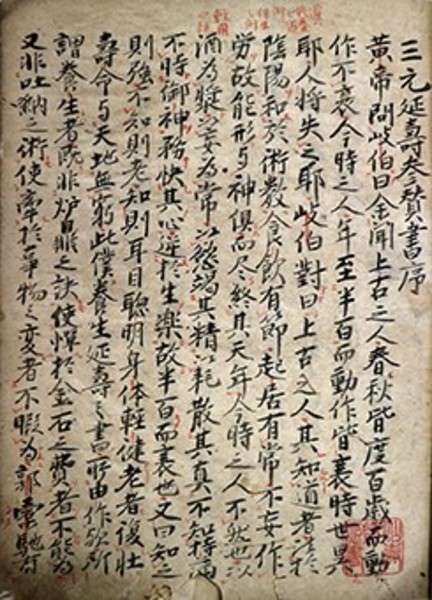 三元延壽參賛書序
黄帝問岐伯曰余聞上古之人春秋皆度百歲而動
作不衰今時之人年至半百而動作皆衰時世異
耶人將失之耶岐伯對曰上古之人其知道者法於
陰陽和於術數食飲有節起居有常不妄作
勞故能形與神俱而尽終其天年今時之人不然也以
酒為漿以妄為常以慾竭其精以耗散其真不知持滿
不時御神務快其心逆於生樂故半百而衰也又曰知之
則強不知則老知則耳目聰明身体輕健老者復壮
壽命与天地無窮此僕養生延壽之書所由作欤所
謂養生者既非炉鼎之訣使惮於金石之費者不能為
又非吐納之術使牽於事物之変者不暇為郭橐駝有